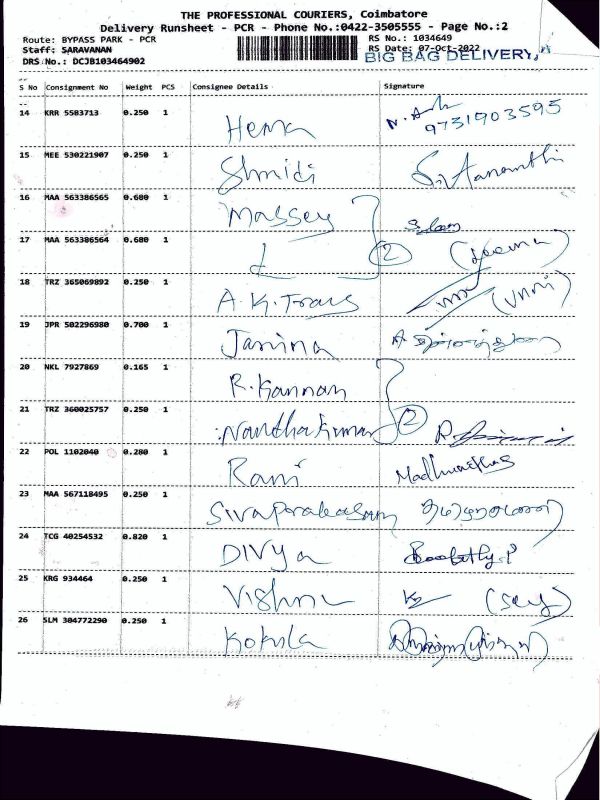 THE PROFESSIONAL COURIERS, Coimbatore
Delivery Runsheet - PCR - Phone No.:0422-3505555 - Page No.:2
Route: BYPASS PARK - PCR RS No.: 1034649
Staff: SARAVANAN RS Date: 07-Oct-2022
DRS No.: DCJB103464902 BIG BAG DELIVERY,
S No Consignment No Weight PCS Consignee Details Signature
14 KRR 5583713 0.250 1 Hema 9731903595
15 MEE 530221907 0.250 1 Shridi
16 MAA 563386565 0.680 1 Massey
17 MAA 563386564 0.680 1 2
18 TRZ 365069892 0.250 1 A.K.Trans
19 JPR 502296980 0.700 1 Janina
20 NKL 7927869 0.165 1 R.Kannan
21 TRZ 360025757 0.250 1 Nandhakumar 2
22 POL 1102040 0.280 1 Rani
23 MAA 567118495 0.250 1 Sivaprakasam
24 TCG 40254532 0.820 1 DIVya
25 KRG 934464 0.250 1 Vishnu
26 SLM 304772290 0.250 1 Kokila